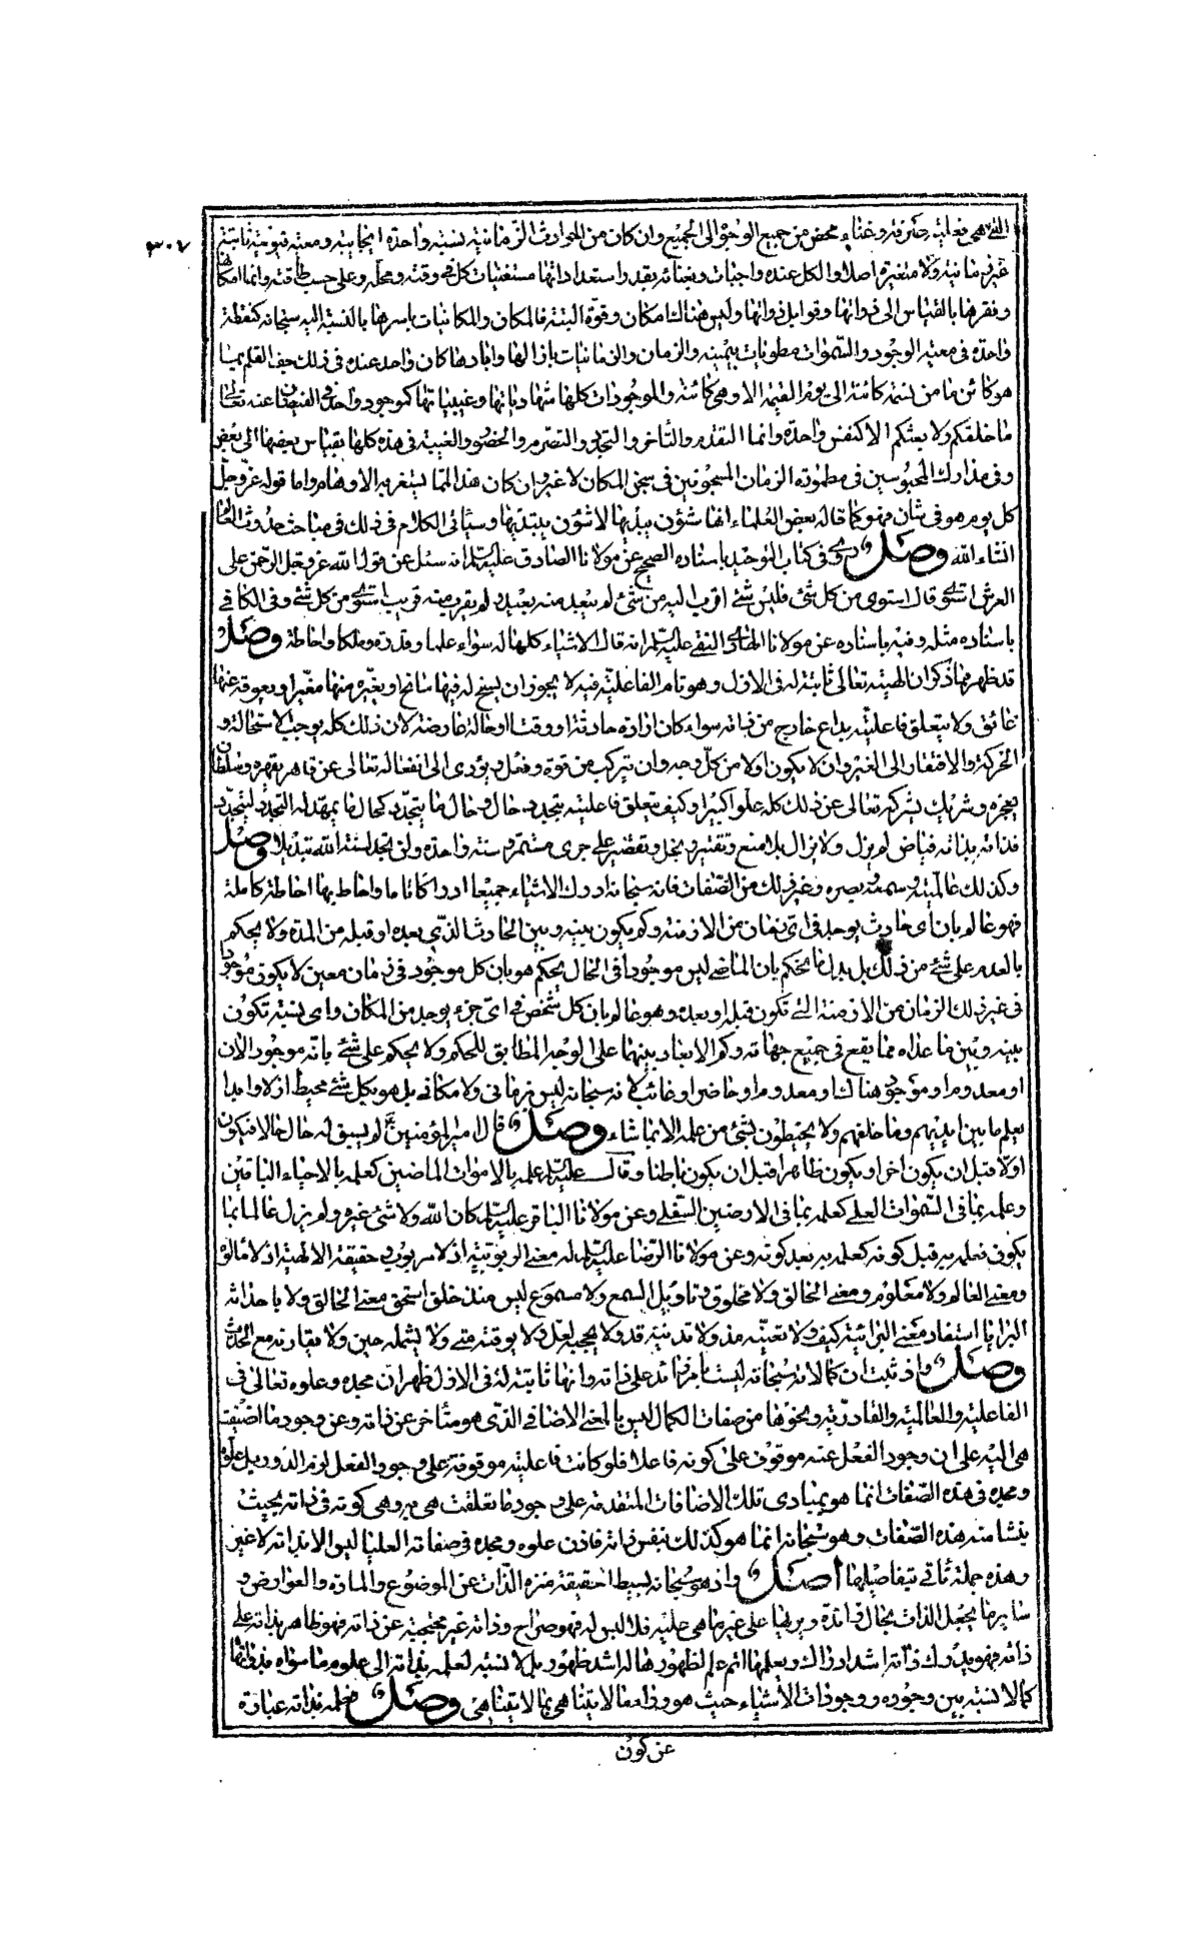 ٣٠٧
التى هى فعلية صرفة وغناء محض من جميع الوجوه الى الجميع وان كان من الحوادث الزمانية نسبة واحدة ايجابية ومعية قيومية ثابتة
غير زمانية ولا متغيرة اصلا والكل عنده واجبات وبغنائه بقدر استعداداتها مستغنيات كل فى وقته ومحله وعلى حسب طاقته وانما امكانها
وفقرها بالقياس الى ذواتها وقوابل ذواتها وليس هناك امكان وقوة البتة فالمكان والمكانيات باسرها بالنسبة اليه سبحانه كنقطة
واحدة فى معية الوجود والسموات مطويات بيمينه والزمان والزمانيات بازالها وابادها كان واحد عنده فى ذلك جف القلم بما
هو كائن ما من نسمة كائنة الى يوم القيمة الا وهى كائنة والموجودات كلها شهادياتها وغيبياتها كموجود واحد فى الفيضان عنه تعالى
ما خلقكم ولا بعثكم الا كنفس واحدة وانما التقدم والتأخر والتجدد والتصرم والحضور والغيبة فى هذه كلها بقياس بعضها الى بعض
وفى مدارك المحبوسين فى مطمورة الزمان المسجونين فى سجن المكان لا غير وان كان هذا لمما يستغربه الاوهام واما قوله عز وجل
كل يوم هو فى شان فهو كما قاله بعض العلماء انها شؤن يبديها لا شؤن يبتديها وسياتى الكلام فى ذلك فى مباحث حدوث العالم
انشاء الله وصل روى فى كتاب التوحيد باسناده الصحيح عن مولانا الصادق عليه السلم انه سئل عن قول الله عز وجل الرحمن على
العرش استوى قال استوى من كل شئ فليس شئ اقرب اليه من شئ لم يبعد منه بعيد ولم يقرب منه قريب استوى من كل شئ وفى الكافى
باسناده مثله وفيه باسناده عن مولانا الهادى النقى عليه السلم انه قال الاشياء كلها له سواء علما وقدرة وملكا واحاطة وصل
قد ظهر مما ذكر ان الهيته تعالى ثابتة له فى الازل وهو تام الفاعلية فيه لا يجوز ان يسنح له فيها سانح او يغيره منها مغير او يعوقه عنها
عائق ولا يتعلق فاعليته بداع خارج من ذاته سواء كان ارادة حادثة او وقتا او حالة عارضة لان ذلك كله يوجب الاستحالة و
الحركة والافتقار الى الغير وان لا يكون اولا من كل وجه وان تركب من قوة وفعل ويؤدى الى انفعاله تعالى عن قاهر يقهره وسلطان
يعجزه وشريك يشركه تعالى عن ذلك كله علوا كبيرا وكيف يتعلق فاعليته بتجدد حال وحال ما يتجدد كحال ما يمهد له التجدد ليتجدد
فذاته بذاته فياض لم يزل ولا يزال بلا منع وتقتير وبخل وتقصير على جرى مستمر وسنة واحدة ولن تجد لسنة الله تبديلا وصل
وكذلك عالميته وسمعه وبصره وغير ذلك من الصفات فانه سبحانه ادرك الاشياء جميعا ادراكا تاما واحاط بها احاطة كاملة
فهو عالم بان اى حادث يوجد فى اى زمان من الازمنة وكم يكون بينه وبين الحادث الذى بعده او قبله من المدة ولا يحكم
بالعدم على شئ من ذلك بل بدل ما نحكم بان الماضى ليس موجودا فى الحال يحكم هو بان كل موجود فى زمان معين لا يكون موجودا
فى غير ذلك الزمان من الازمنة التى تكون قبله او بعده وهو عالم بان كل شخص فى اى جزء يوجد من المكان واى نسبة تكون
بينه وبين ما عداه مما يقع فى جميع جهاته وكم الابعاد بينهما على الوجه المطابق للحكم ولا يحكم على شئ بانه موجود الان
او معدوم او موجود هناك او معدوم او حاضر او غائب لانه سبحانه ليس بزمانى ولا مكانى بل هو بكل شئ محيط ازلا وابدا
يعلم ما بين ايديهم وما خلفهم ولا يحيطون بشئ من علمه الا بما شاء وصل قال امير المؤمنين ع لم يسبق له حال حالا فيكون
اولا قبل ان يكون اخرا ويكون ظاهرا قبل ان يكون باطنا وقال عليه السلم علمه بالاموات الماضين كعلمه بالاحياء الباقين
وعلمه بما فى السموات العلى كعلمه بما فى الارضين السفلى وعن مولانا الباقر عليه السلم كان الله ولا شئ غيره ولم يزل عالما بما
يكون فعلمه به قبل كونه كعلمه به بعد كونه وعن مولانا الرضا عليه السلم له معنى الربوبية اذ لا مربوب وحقيقة الالهية اذ لا مألوه
ومعنى العالم ولا معلوم ومعنى الخالق ولا مخلوق وتاويل السمع ولا مسموع ليس منذ خلق استحق معنى الخالق ولا باحداثه
البرايا استفاد معنى البرائية كيف ولا تغيبه مذ ولا تدنيه قد ولا يحجبه لعل ولا يوقته متى ولا يشمله حين ولا يقارنه مع الحديث
وصل واذ ثبت ان كمالاته سبحانه ليست بامر زائد على ذاته وانها ثابتة له فى الازل ظهر ان مجده وعلوه تعالى فى
الفاعلية والعالمية والقادرية ونحوها من صفات الكمال ليس بالمعنى الاضافى الذى هو متأخر عن ذاته وعن وجود ما اضيفت
هى اليه على ان وجود الفعل عنه موقوف على كونه فاعلا فلو كانت فاعليته موقوفة على وجود الفعل لزم الدور بل علوه
ومجده فى هذه الصفات انما هو بمبادى تلك الاضافات المتقدمة على وجود ما تعلقت هى به وهى كونه فى ذاته بحيث
ينشا منه هذه الصفات وهو سبحانه انما هو كذلك بنفس ذاته فاذن علوه ومجده فى صفاته العليا ليس الا بذاته لا غير
وهذه جملة تاتى تفاصيلها اصل واذ هو سبحانه بسيط الحقيقة منزه الذات عن الموضوع والمادة والعوارض و
سائر ما يجعل الذات بحال زائدة ويريها على غير ما هى عليه فلا لبس له فهو صراح وذاته غير محتجبة عن ذاته فهو ظاهر بذاته على
ذاته فهو يدرك ذاته اشد ادراك ويعلمها اتم علم لظهورها له اشد ظهور بل لا نسبة لعلمه بذاته الى علوم ما سواه بذواتها
كما لا نسبة بين وجوده ووجودات الاشياء حيث هو وراء ما لا يتناهى بما لا يتناهى وصل فعلمه بذاته عبارة
عن كون